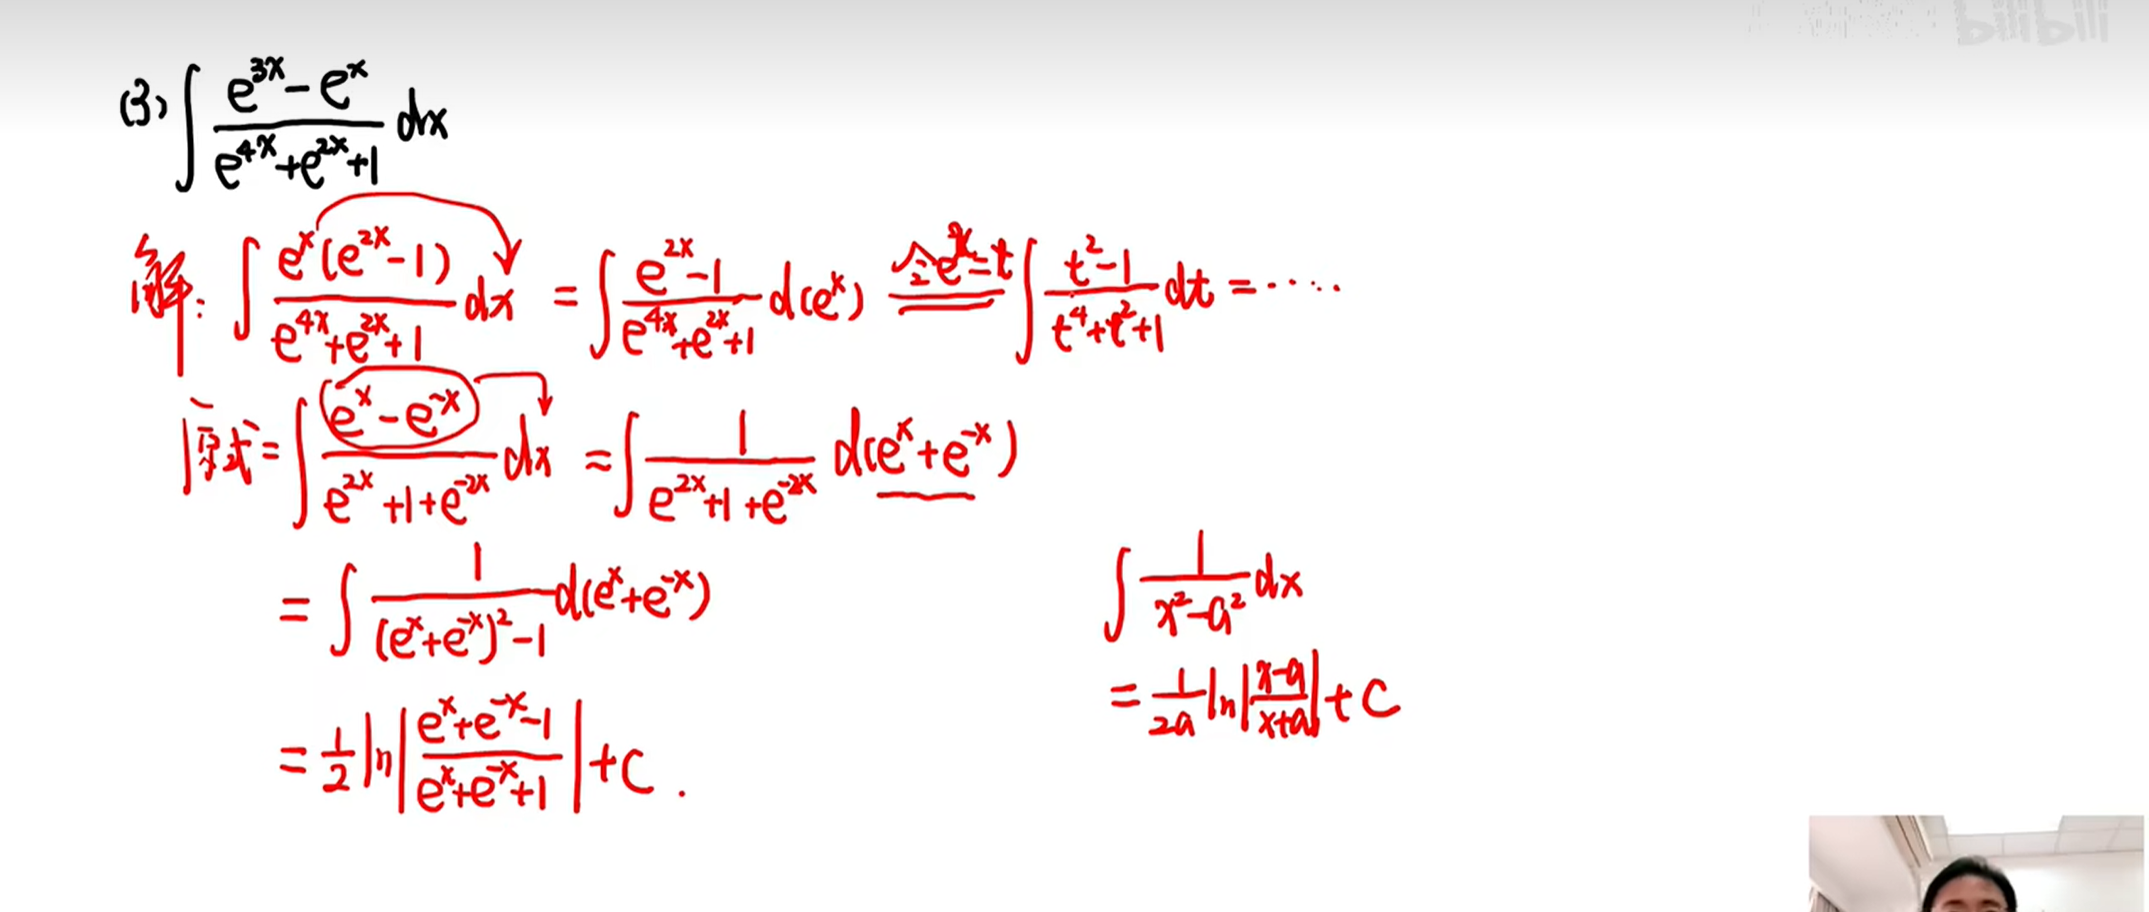 bilibili
(3) ∫ (e^{3x} - e^x)/(e^{4x} + e^{2x} + 1) dx
解: ∫ e^x(e^{2x} - 1)/(e^{4x} + e^{2x} + 1) dx = ∫ (e^{2x} - 1)/(e^{4x} + e^{2x} + 1) d(e^x) 令e^x = t ∫ (t^2 - 1)/(t^4 + t^2 + 1) dt = ……
原式 = ∫ (e^x - e^{-x})/(e^{2x} + 1 + e^{-2x}) dx = ∫ 1/(e^{2x} + 1 + e^{-2x}) d(e^x + e^{-x})
= ∫ 1/((e^x + e^{-x})^2 - 1) d(e^x + e^{-x})
= 1/2 ln|(e^x + e^{-x} - 1)/(e^x + e^{-x} + 1)| + C .
∫ 1/(x^2 - a^2) dx
= 1/(2a) ln|(x - a)/(x + a)| + C